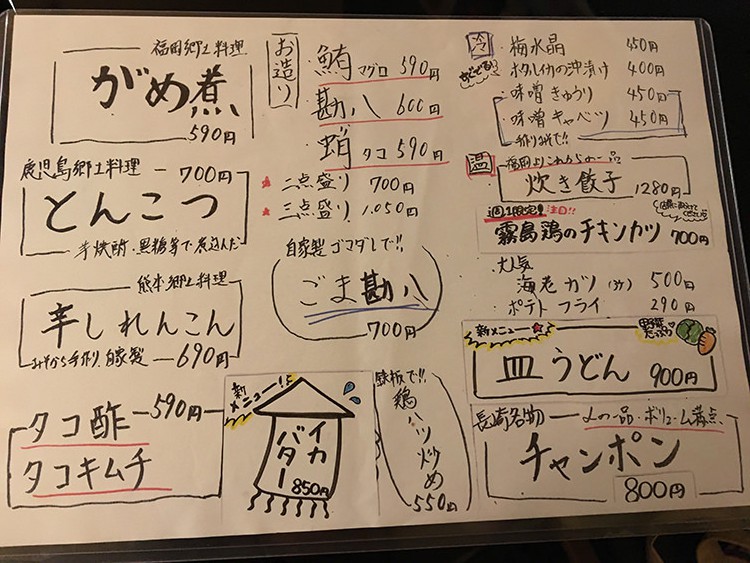 福岡郷土料理
がめ煮
590円
鹿児島郷土料理
700円
とんこつ
芋焼酎・黒糖等で煮込んだ
熊本郷土料理
辛しれんこん
みそから手作り、自家製 690円
タコ酢 590円
タコキムチ
お造り
鮪 マグロ 590円
勘八 600円
蛸 タコ 590円
二点盛り 700円
三点盛り 1.050円
自家製 ゴマダレで!!
ごま勘八
700円
新メニュー!!
イカバター
850円
鉄板で!!
鶏ハツ炒め
550円
冷
梅水晶 450円
ホタルイカの沖漬け 400円
味噌きゅうり 450円
味噌キャベツ 450円
温
炊き餃子 1280円
注目!!
霧島鶏のチキンカツ 700円
大人気
海老カツ (3ケ) 500円
ポテトフライ 290円
新メニュー
野菜たっぷり
皿うどん 900円
長崎名物
の一品・ボリューム満点
チャンポン
800円